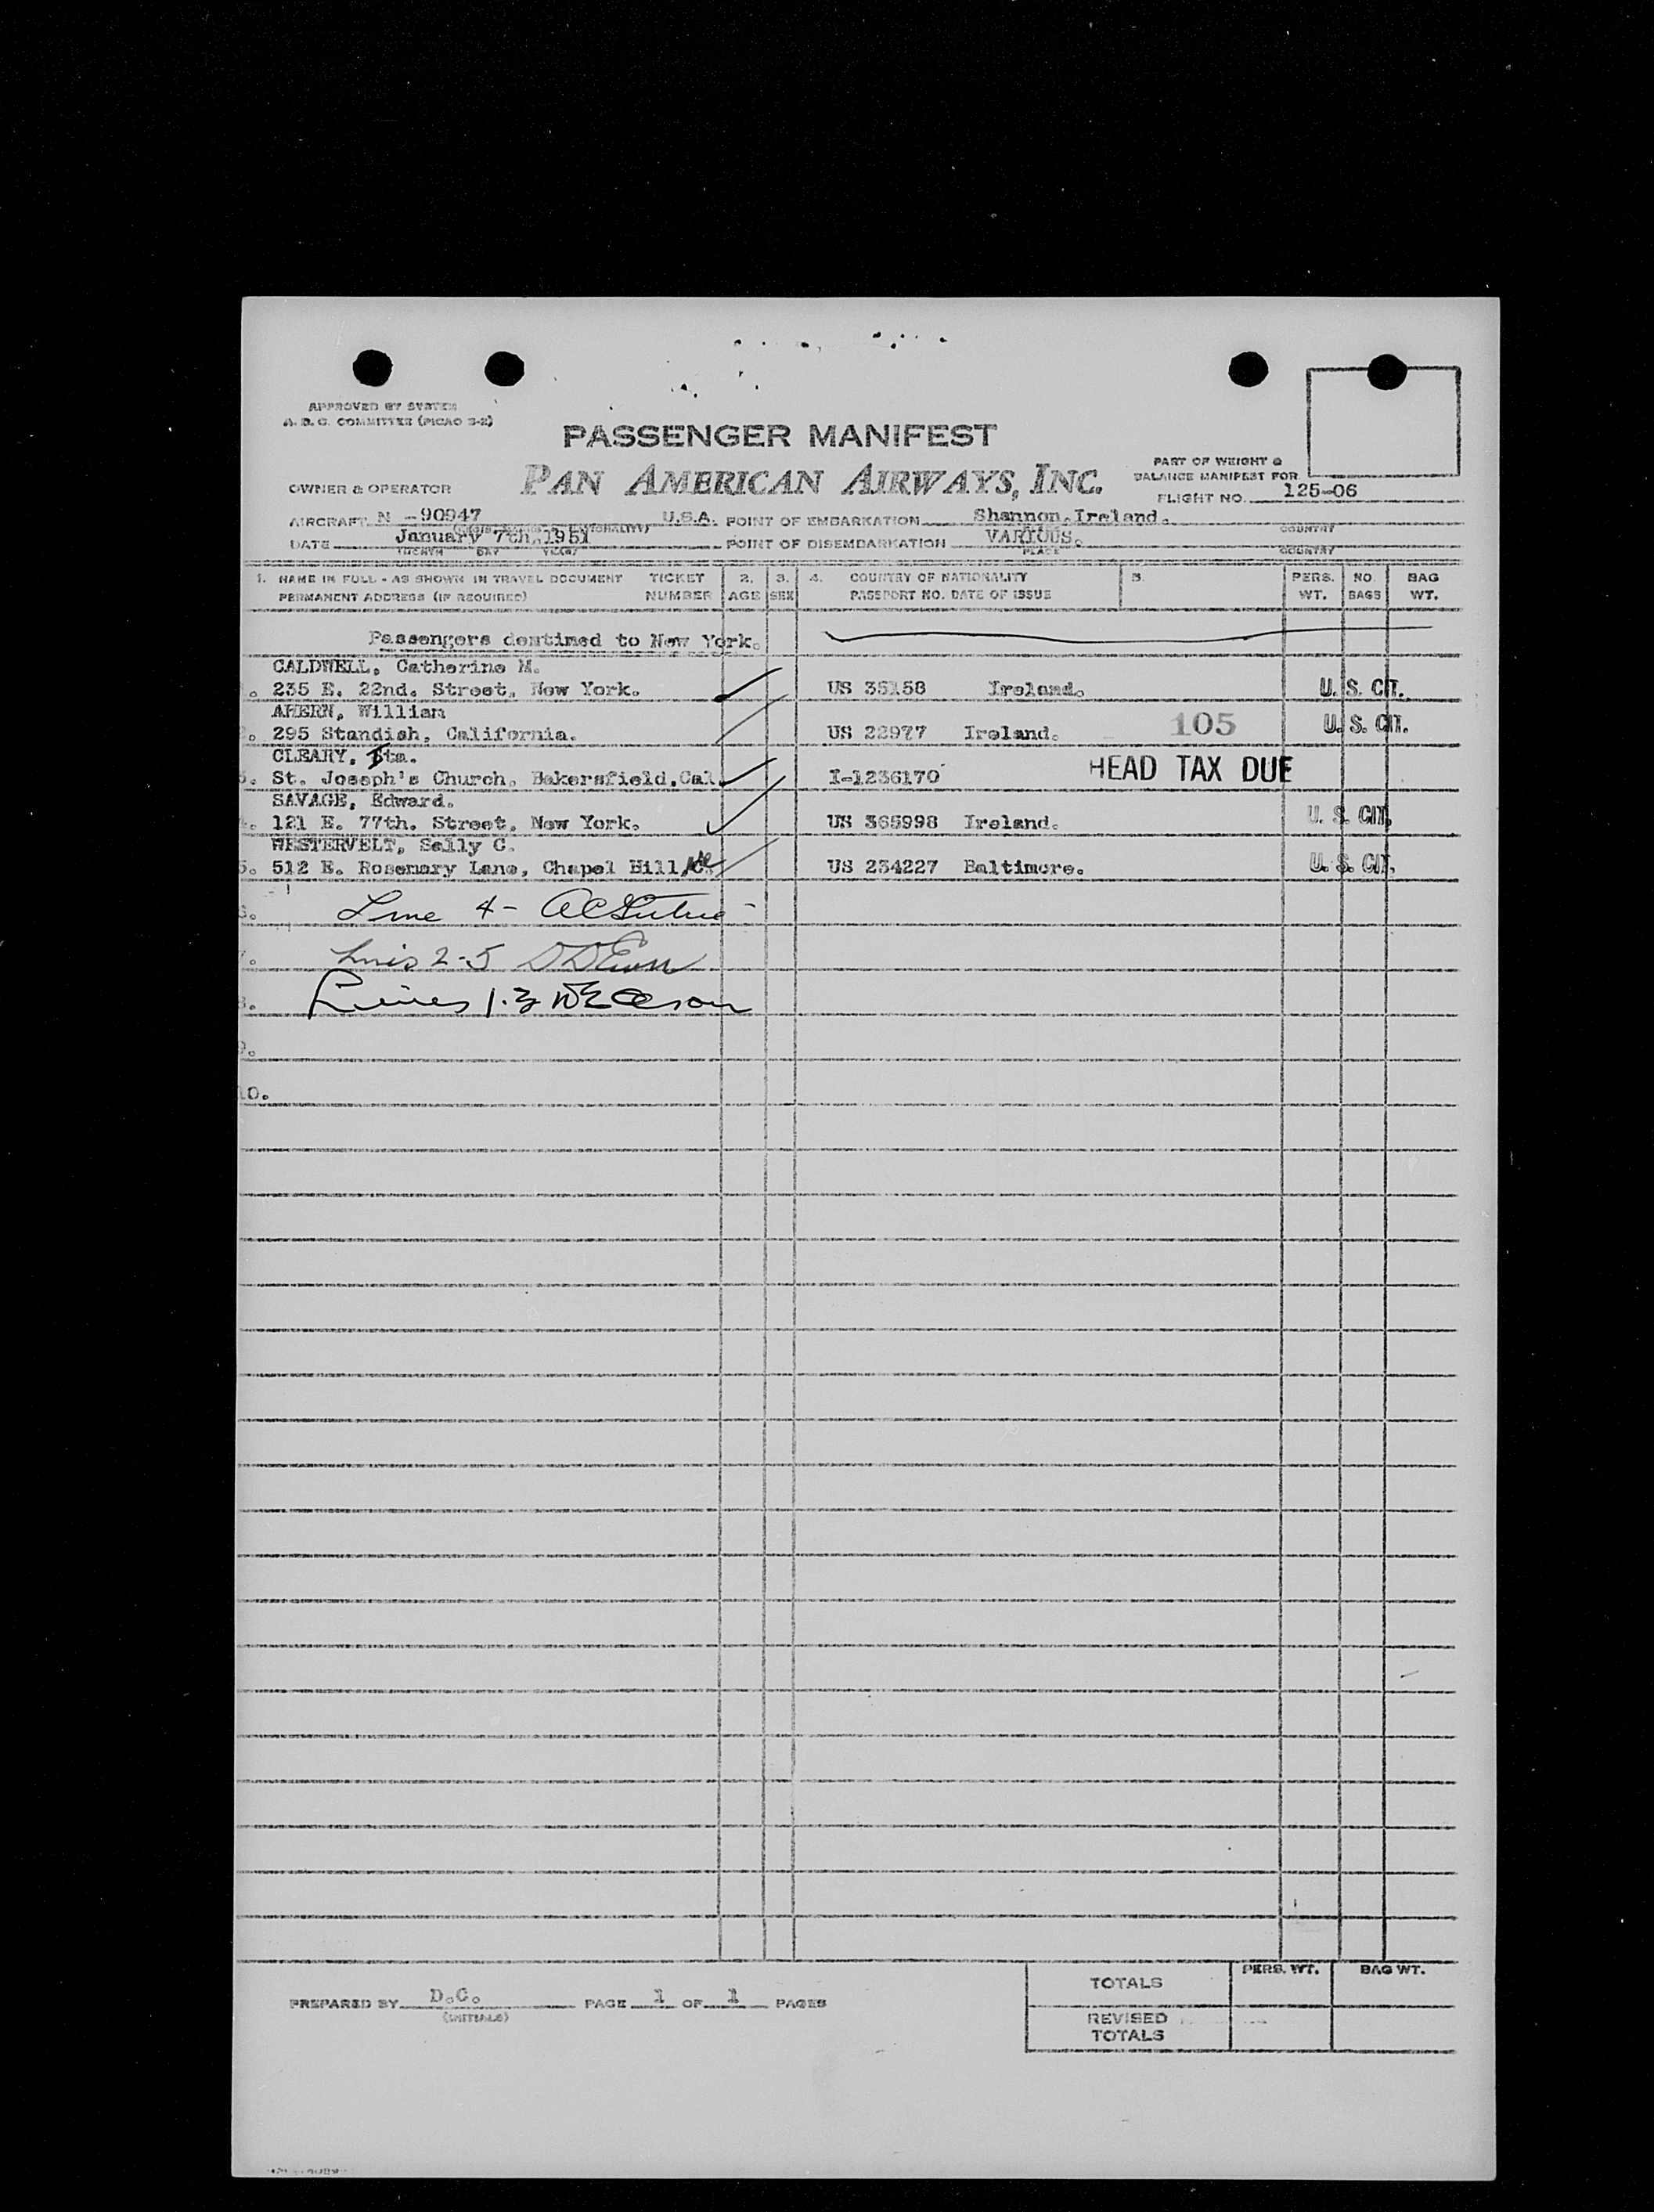 APPROVED BY SYSTEM
A. D. C. COMMITTEE (PICAO 2-2)
PASSENGER MANIFEST
OWNER & OPERATOR PAN AMERICAN AIRWAYS, INC.
PART OF WEIGHT &
BALANCE MANIFEST FOR
FLIGHT NO. 125-06
AIRCRAFT N -90947 U.S.A. POINT OF EMBARKATION Shannon, Ireland.
COUNTRY
DATE January 7th, 1951 POINT OF DISEMBARKATION VARIOUS.
MONTH DAY YEAR PLACE COUNTRY
1. NAME IN FULL - AS SHOWN IN TRAVEL DOCUMENT TICKET 2. 3. 4. COUNTRY OF NATIONALITY 5. PERS. NO. BAG
PERMANENT ADDRESS (IF REQUIRED) NUMBER AGE SEX PASSPORT NO. DATE OF ISSUE WT. BAGS WT.
Passengers destined to New York.
CALDWELL, Catherine M.
1. 235 E. 22nd. Street, New York. US 35158 Ireland. U. S. CIT.
AHERN, William
2. 295 Standish, California. US 22977 Ireland. 105 U. S. CIT.
CLEARY, Ita.
3. St. Joseph's Church, Bakersfield, Cal. I-1236170 HEAD TAX DUE
SAVAGE, Edward.
4. 121 E. 77th. Street, New York. US 365998 Ireland. U. S. CIT.
WESTERVELT, Sally C.
5. 512 E. Rosemary Lane, Chapel Hill, NC US 234227 Baltimore. U. S. CIT.
6. Line 4 -
7. Lines 2-5
8. Lines 1.3
9.
10.
PREPARED BY D.C. PAGE 1 OF 1 PAGES
(INITIALS)
PERS. WT. BAG WT.
TOTALS
REVISED
TOTALS